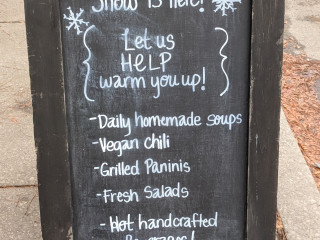 Snow is here!
Let us
HELP
warm you up!
- Daily homemade soups
- Vegan chili
- Grilled Paninis
- Fresh Salads
- Hot handcrafted
Beverages!